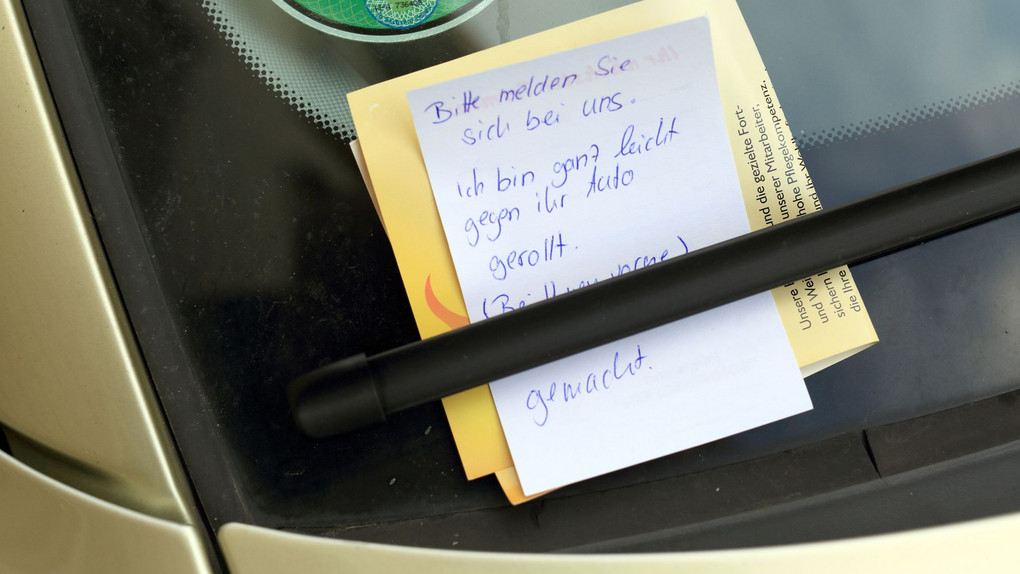 Bitte melden Sie
sich bei uns.
Ich bin ganz leicht
gegen ihr Auto
gerollt.
(Bei Ihnen vorne)
gemacht.
und die gezielte Fort-
unserer Mitarbeiter,
hohe Pflegekompetenz.
Unsere
und Wei
sichern
die Ihre